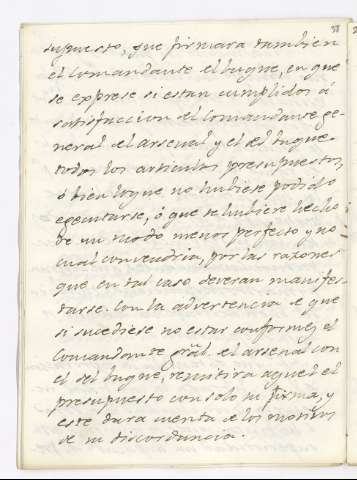 supuesto, que firmara tambien
el Comandante el buque, en que
se exprese si estan cumplidos á
satisfaccion del Comandante ge-
neral el arsenal y el del buque
todos los articulos presupuestos,
ó bien loque no hubiese podido
egecutarse, ó que se hubiere hecho
de un modo menos perfecto y no
cual convendria, por las razones
que en tal caso deveran manifes-
tarse. Con la advertencia e que
si sucediese no estar conformes el
Comandante gral. el arsenal con
el del buque, remitira aquel el
presupuesto con solo su firma, y
este dara cuenta e los motivos
de su discordancia.